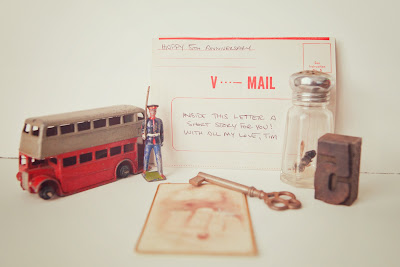 HAPPY 5TH ANNIVERSARY
V···— MAIL
INSIDE THIS LETTER A
SHORT STORY FOR YOU!
WITH ALL MY LOVE, TIM
5